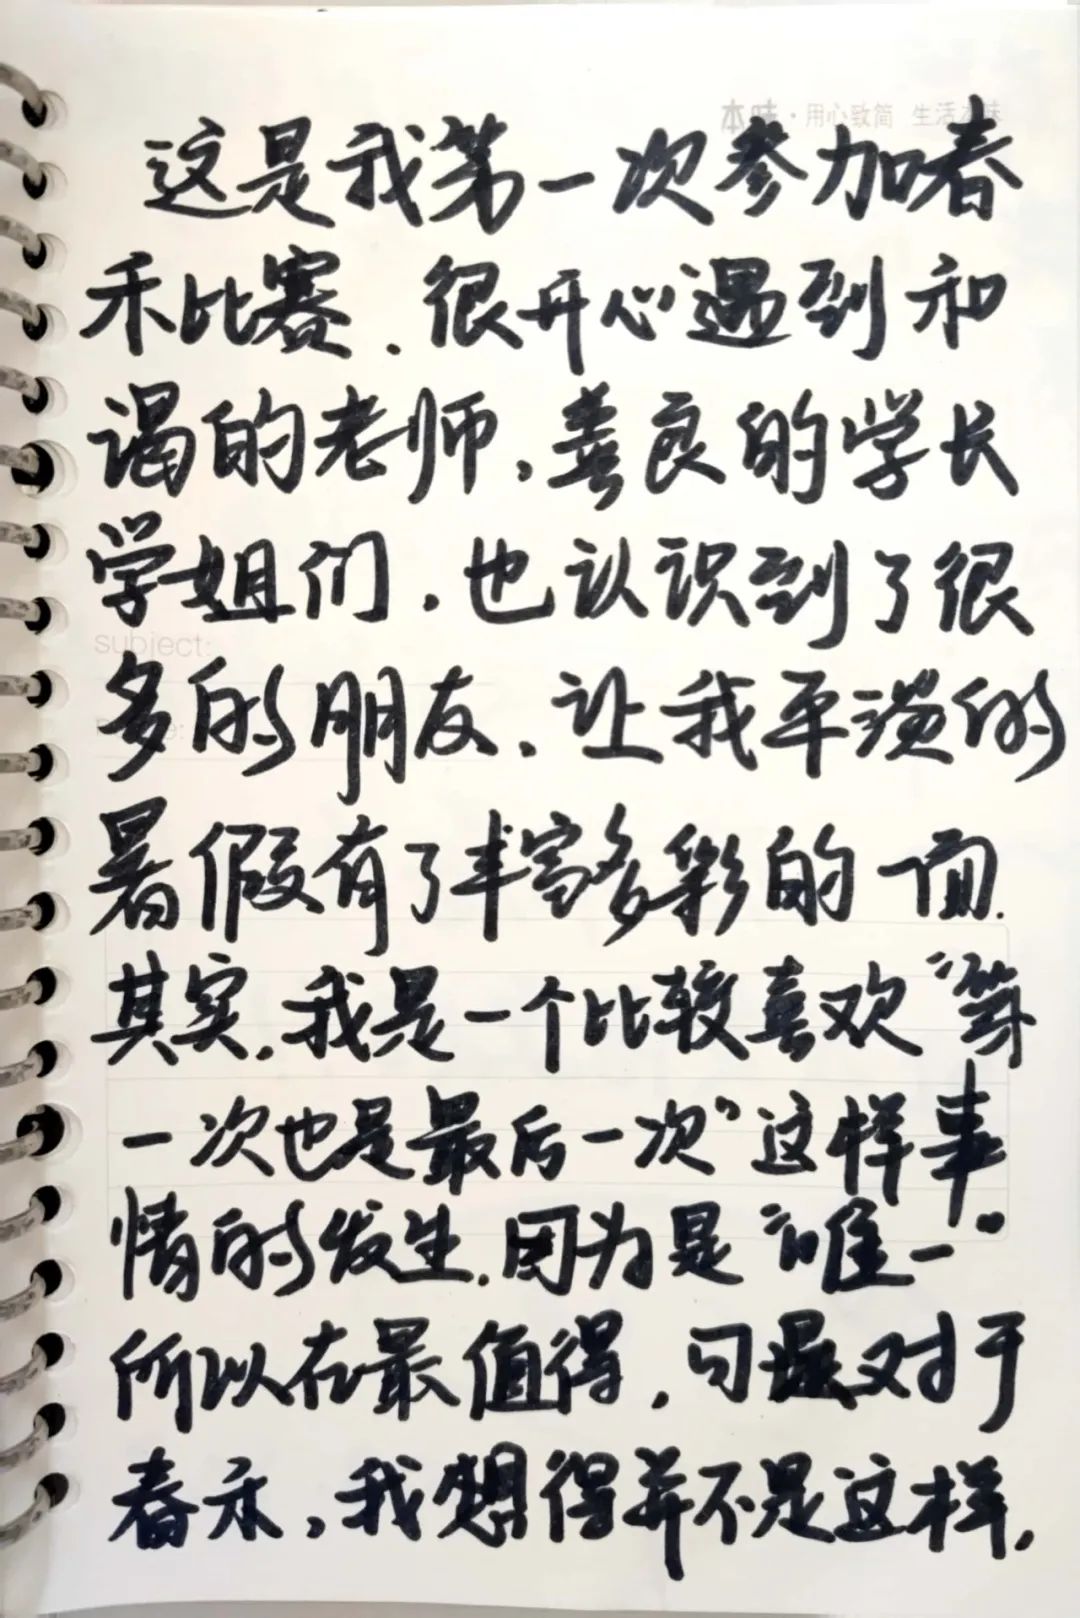 本味·用心致简 生活本味
这是我第一次参加春
禾比赛.很开心遇到和
谒的老师,善良的学长
学姐们,也认识到了很
subject:
多的朋友,让我平淡的
暑假有了丰富多彩的一面.
其实,我是一个比较喜欢“第
一次也是最后一次”这样事
情的发生.因为是“唯一”
所以在最值得,可是对于
春禾,我想得并不是这样,